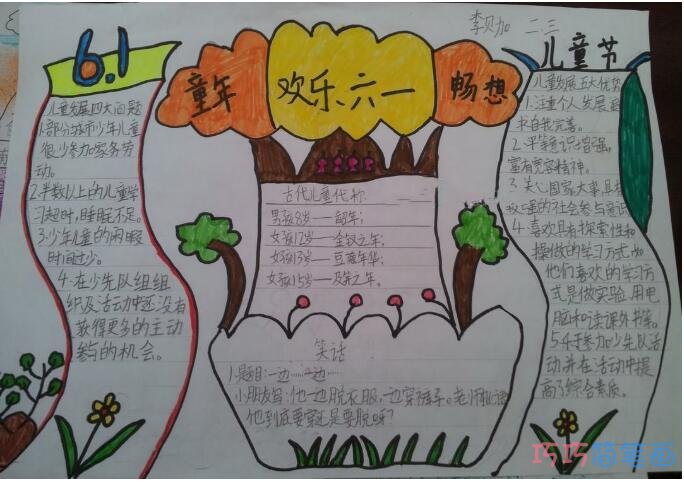 李贝加 二三
6.1
童年 欢乐六一 畅想
儿童节
儿童发展四大问题
1.部分城市少年儿童
很少参加家务劳
动。
2.半数以上的儿童学
习超时,睡眠不足。
3.少年儿童的闲暇
时间过少。
4.在少先队组组
织及活动中还没有
获得更多的主动
参与的机会。
古代儿童代称
男孩8岁——韶年;
女孩12岁——金钗之年;
女孩13岁——豆蔻年华;
女孩15岁——及笄之年。
笑话
1.题目:一边……一边……
小朋友写:他一边脱衣服,一边穿裤子。老师批评:
他到底要穿还是要脱呀?
儿童发展五大优势
1.注重个人发展
求自我完善。
2.平等意识增强,
富有宽容精神。
3.关心国家大事,具有
的社会参与意识
4.喜欢具有探索性和
操做的学习方式,如
他们喜欢的学习方
式是做实验、用电
脑和阅读课外书等。
5.参加少年队活
动并在活动中提
高了综合素质。
巧巧简笔画